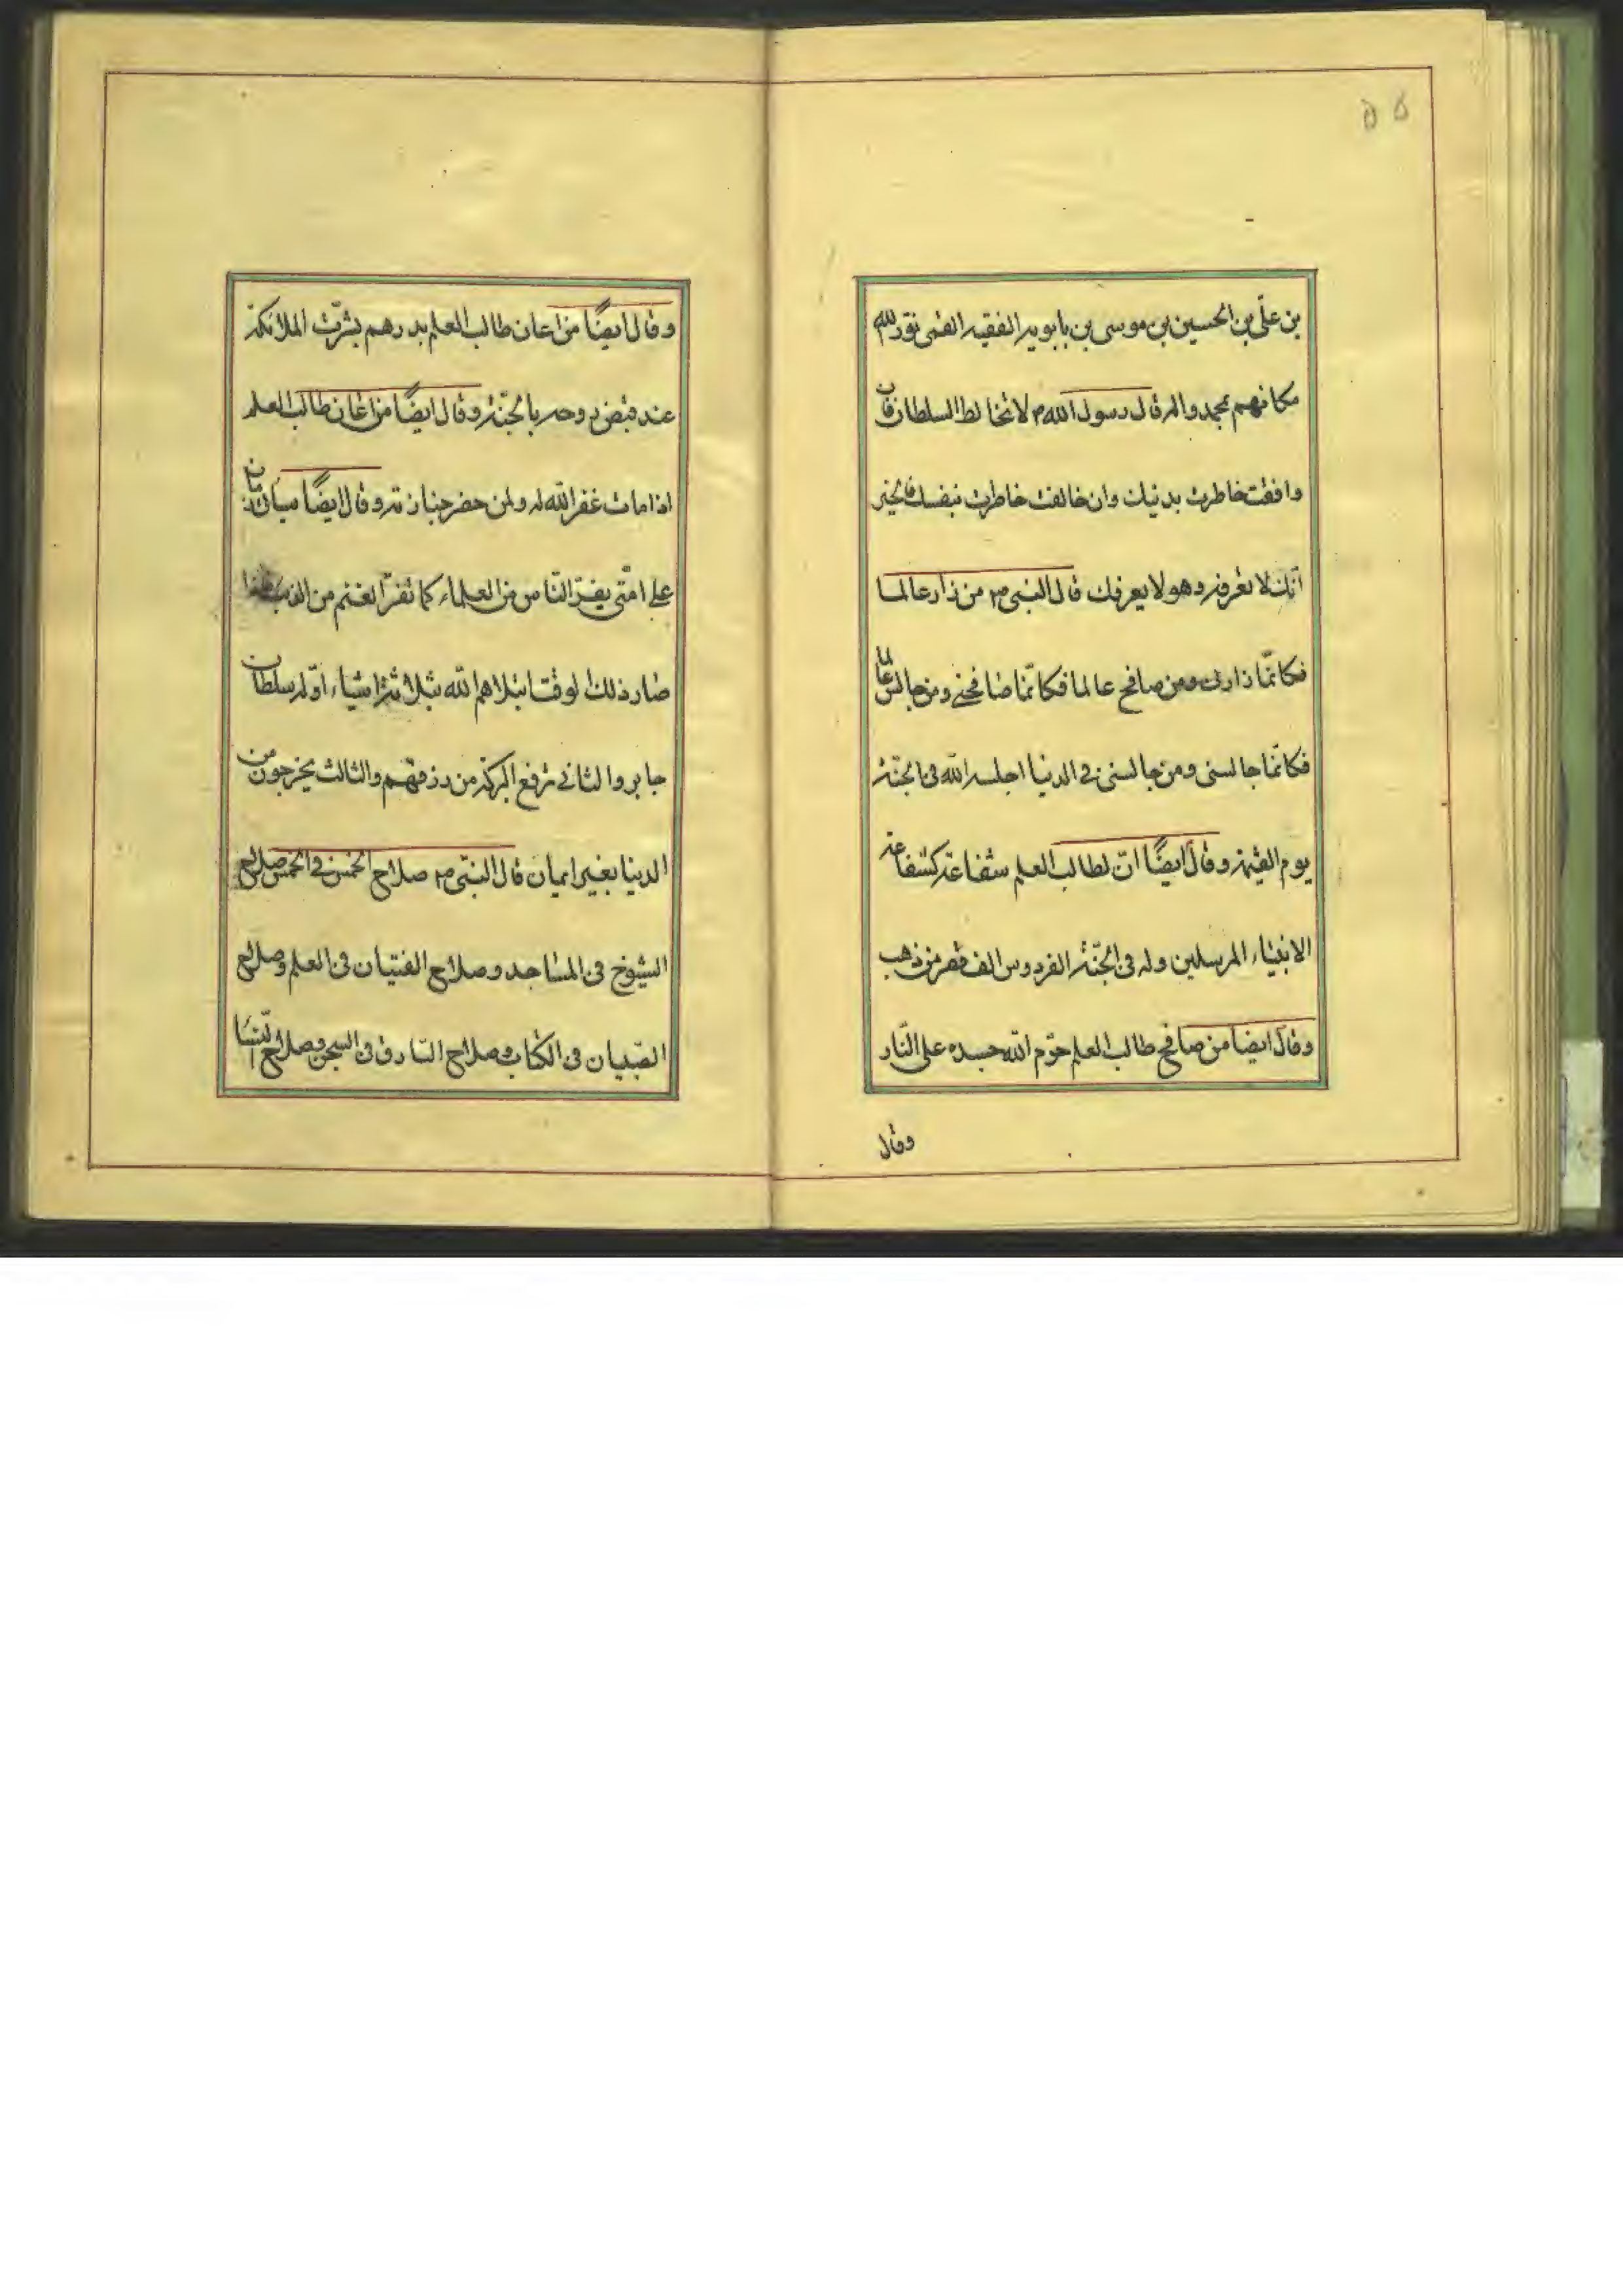 ۵۵
بن علىّ بن الحسين بن موسى بن بابويه الفقيه القمى نوّر الله
مكانهم بمحمد واله قال رسول الله ص لا تخالط السلطان فان
وافقت خاطرت بدنيك وان خالفت خاطرت بنفسك فالخير
انّك لا تعرفه وهو لا يعرفك قال النبى ص من زار عالما
فكانّما زارنى ومن صافح عالما فكانّما صافحنى ومن جالس عالما
فكانّما جالسنى ومن جالسنى فى الدنيا اجلسه الله فى الجنّة
يوم القيمة وقال ايضًا انّ لطالب العلم شفاعة كشفاعة
الانبياء المرسلين وله فى الجنّة الفردوس الف قصر من ذهب
وقال ايضا من صافح طالب العلم حرّم الله جسده على النّار
وقال
وقال ايضًا من اعان طالب العلم بدرهم بشّرت الملائكة
عند قبض روحه بالجنّة وقال ايضًا من اعان طالب العلم
اذا مات غفر الله له ولمن حضر جنازته وقال ايضًا سياتى زمان
على امّتى يفرّ النّاس من العلماء كما تفرّ الغنم من الذئب
صار ذلك لوقت ابتلاهم الله بثلاثة اشياء اوّله سلطان
جابر والثانى ترفع البركة من رزقهم والثالث يخرجون من
الدنيا بغير ايمان قال النبى ص صلاح الخمس فى الخمس صلاح
الشيوخ فى المساجد وصلاح الفتيان فى العلم وصلاح
الصّبيان فى الكتاب وصلاح السّارق فى السجن وصلاح النّسا